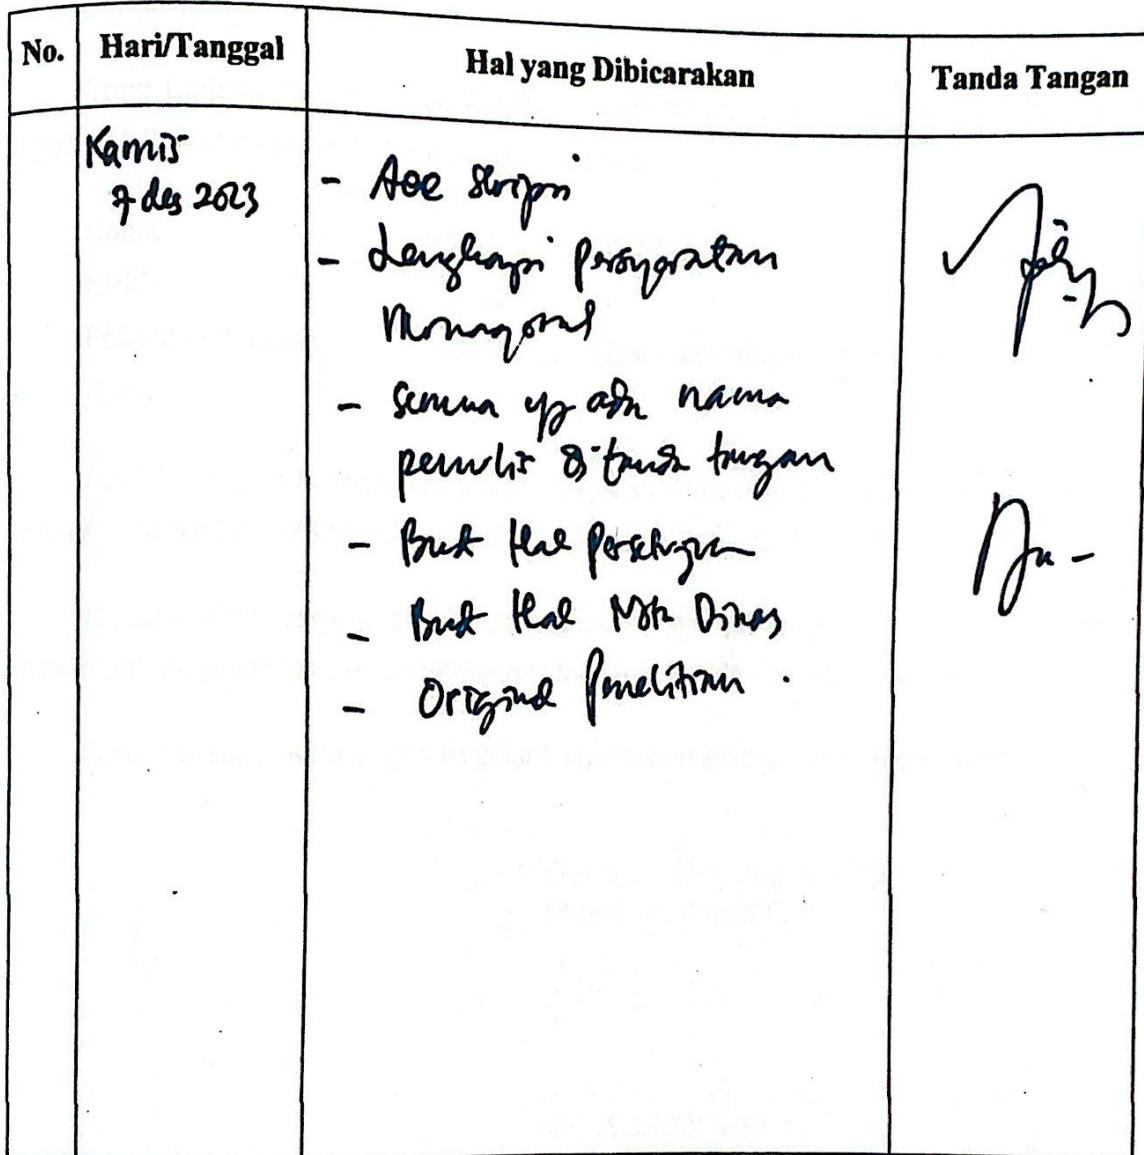 No. Hari/Tanggal Hal yang Dibicarakan Tanda Tangan
Kamis
7 des 2023
- Acc Skripsi
- Lengkapi persyaratan
Munaqosah
- semua yg ada nama
penulis di tanda tangan
- Buat Hal Persetujuan
- Buat Hal Nota Dinas
- Original Penelitian.